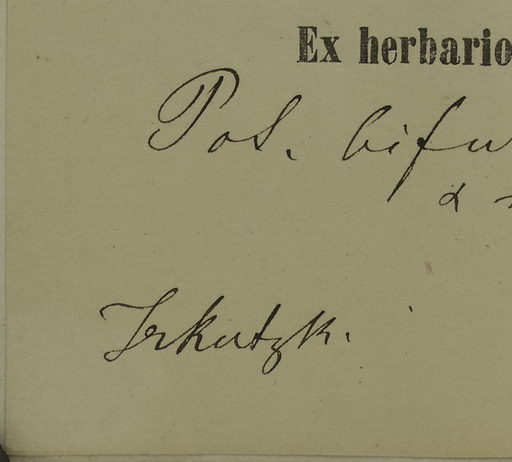 Ex herbario
Pot. bifu
α
Irkutzk.